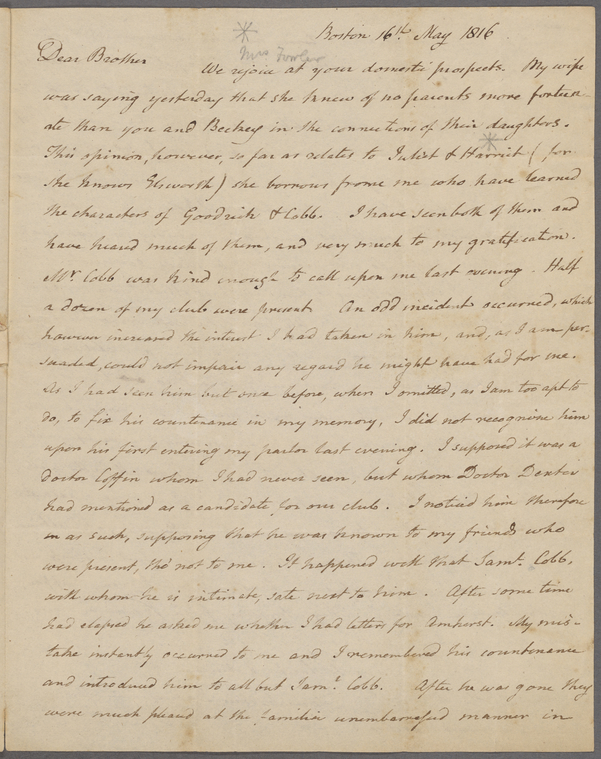 Boston 16th May 1816
* Mrs Fowler
Dear Brother
We rejoice at your domestic prospects. My wife
was saying yesterday that she knew of no parents more fortun-
ate than you and Beckey in the connections of their daughters.
This opinion, however, so far as relates to Juliet & Harriet * ( for
she knows Elsworth) she borrows frome me who have learned
the characters of Goodrich & Cobb. I have seen both of them and
have heared much of them, and very much to my gratification.
Mr. Cobb was kind enough to call upon me last evening. Half
a dozen of my club were present. An odd incident occurred, which
however increased the interest I had taken in him, and, as I am per-
suaded, could not impair any regard he might have had for me.
As I had seen him but once before, when I omitted, as I am too apt to
do, to fix his countenance in my memory, I did not recognise him
upon his first entering my parlor last evening. I supposed it was a
doctor Coffin whom I had never seen, but whom Doctor Dexter
had mentioned as a candidate for our club. I noticed him therefore
as such, supposing that he was known to my friends who
were present, tho' not to me. It happened well that Saml. Cobb,
with whom he is intimate, sate next to him. After some time
had elapsed he asked me whether I had letters for Amherst. My mis-
take instantly occurred to me and I remembered his countenance
and introduced him to all but Saml. Cobb. After he was gone they
were much pleased at the familiar unembarrassed manner in